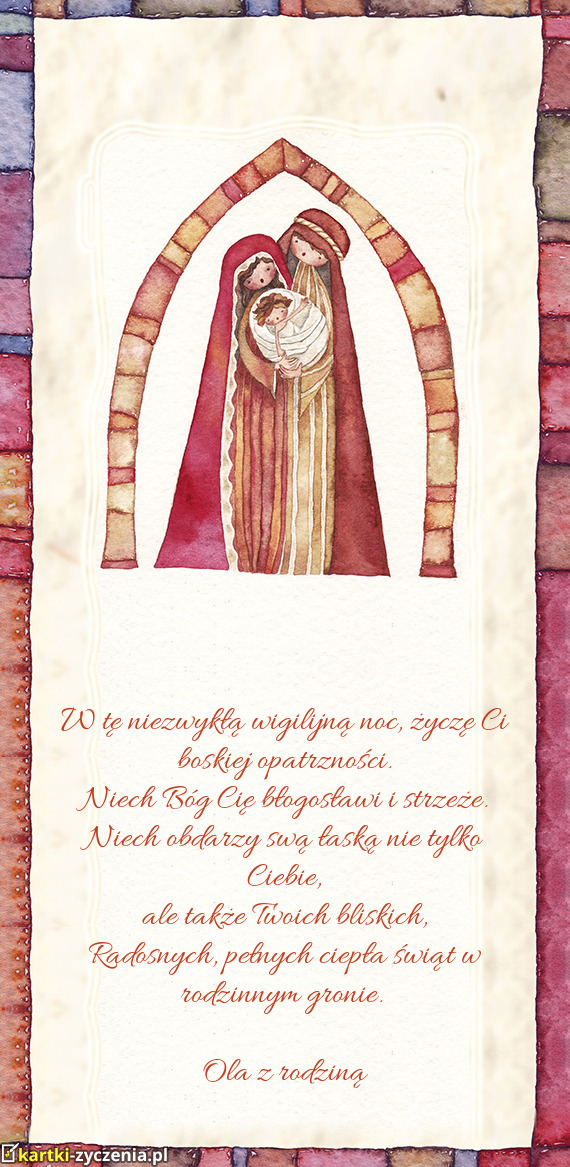 W tę niezwykłą wigilijną noc, życzę Ci
boskiej opatrzności.
Niech Bóg Cię błogosławi i strzeże.
Niech obdarzy swą łaską nie tylko
Ciebie,
ale także Twoich bliskich,
Radosnych, pełnych ciepła świąt w
rodzinnym gronie.
Ola z rodziną
kartki-zyczenia.pl